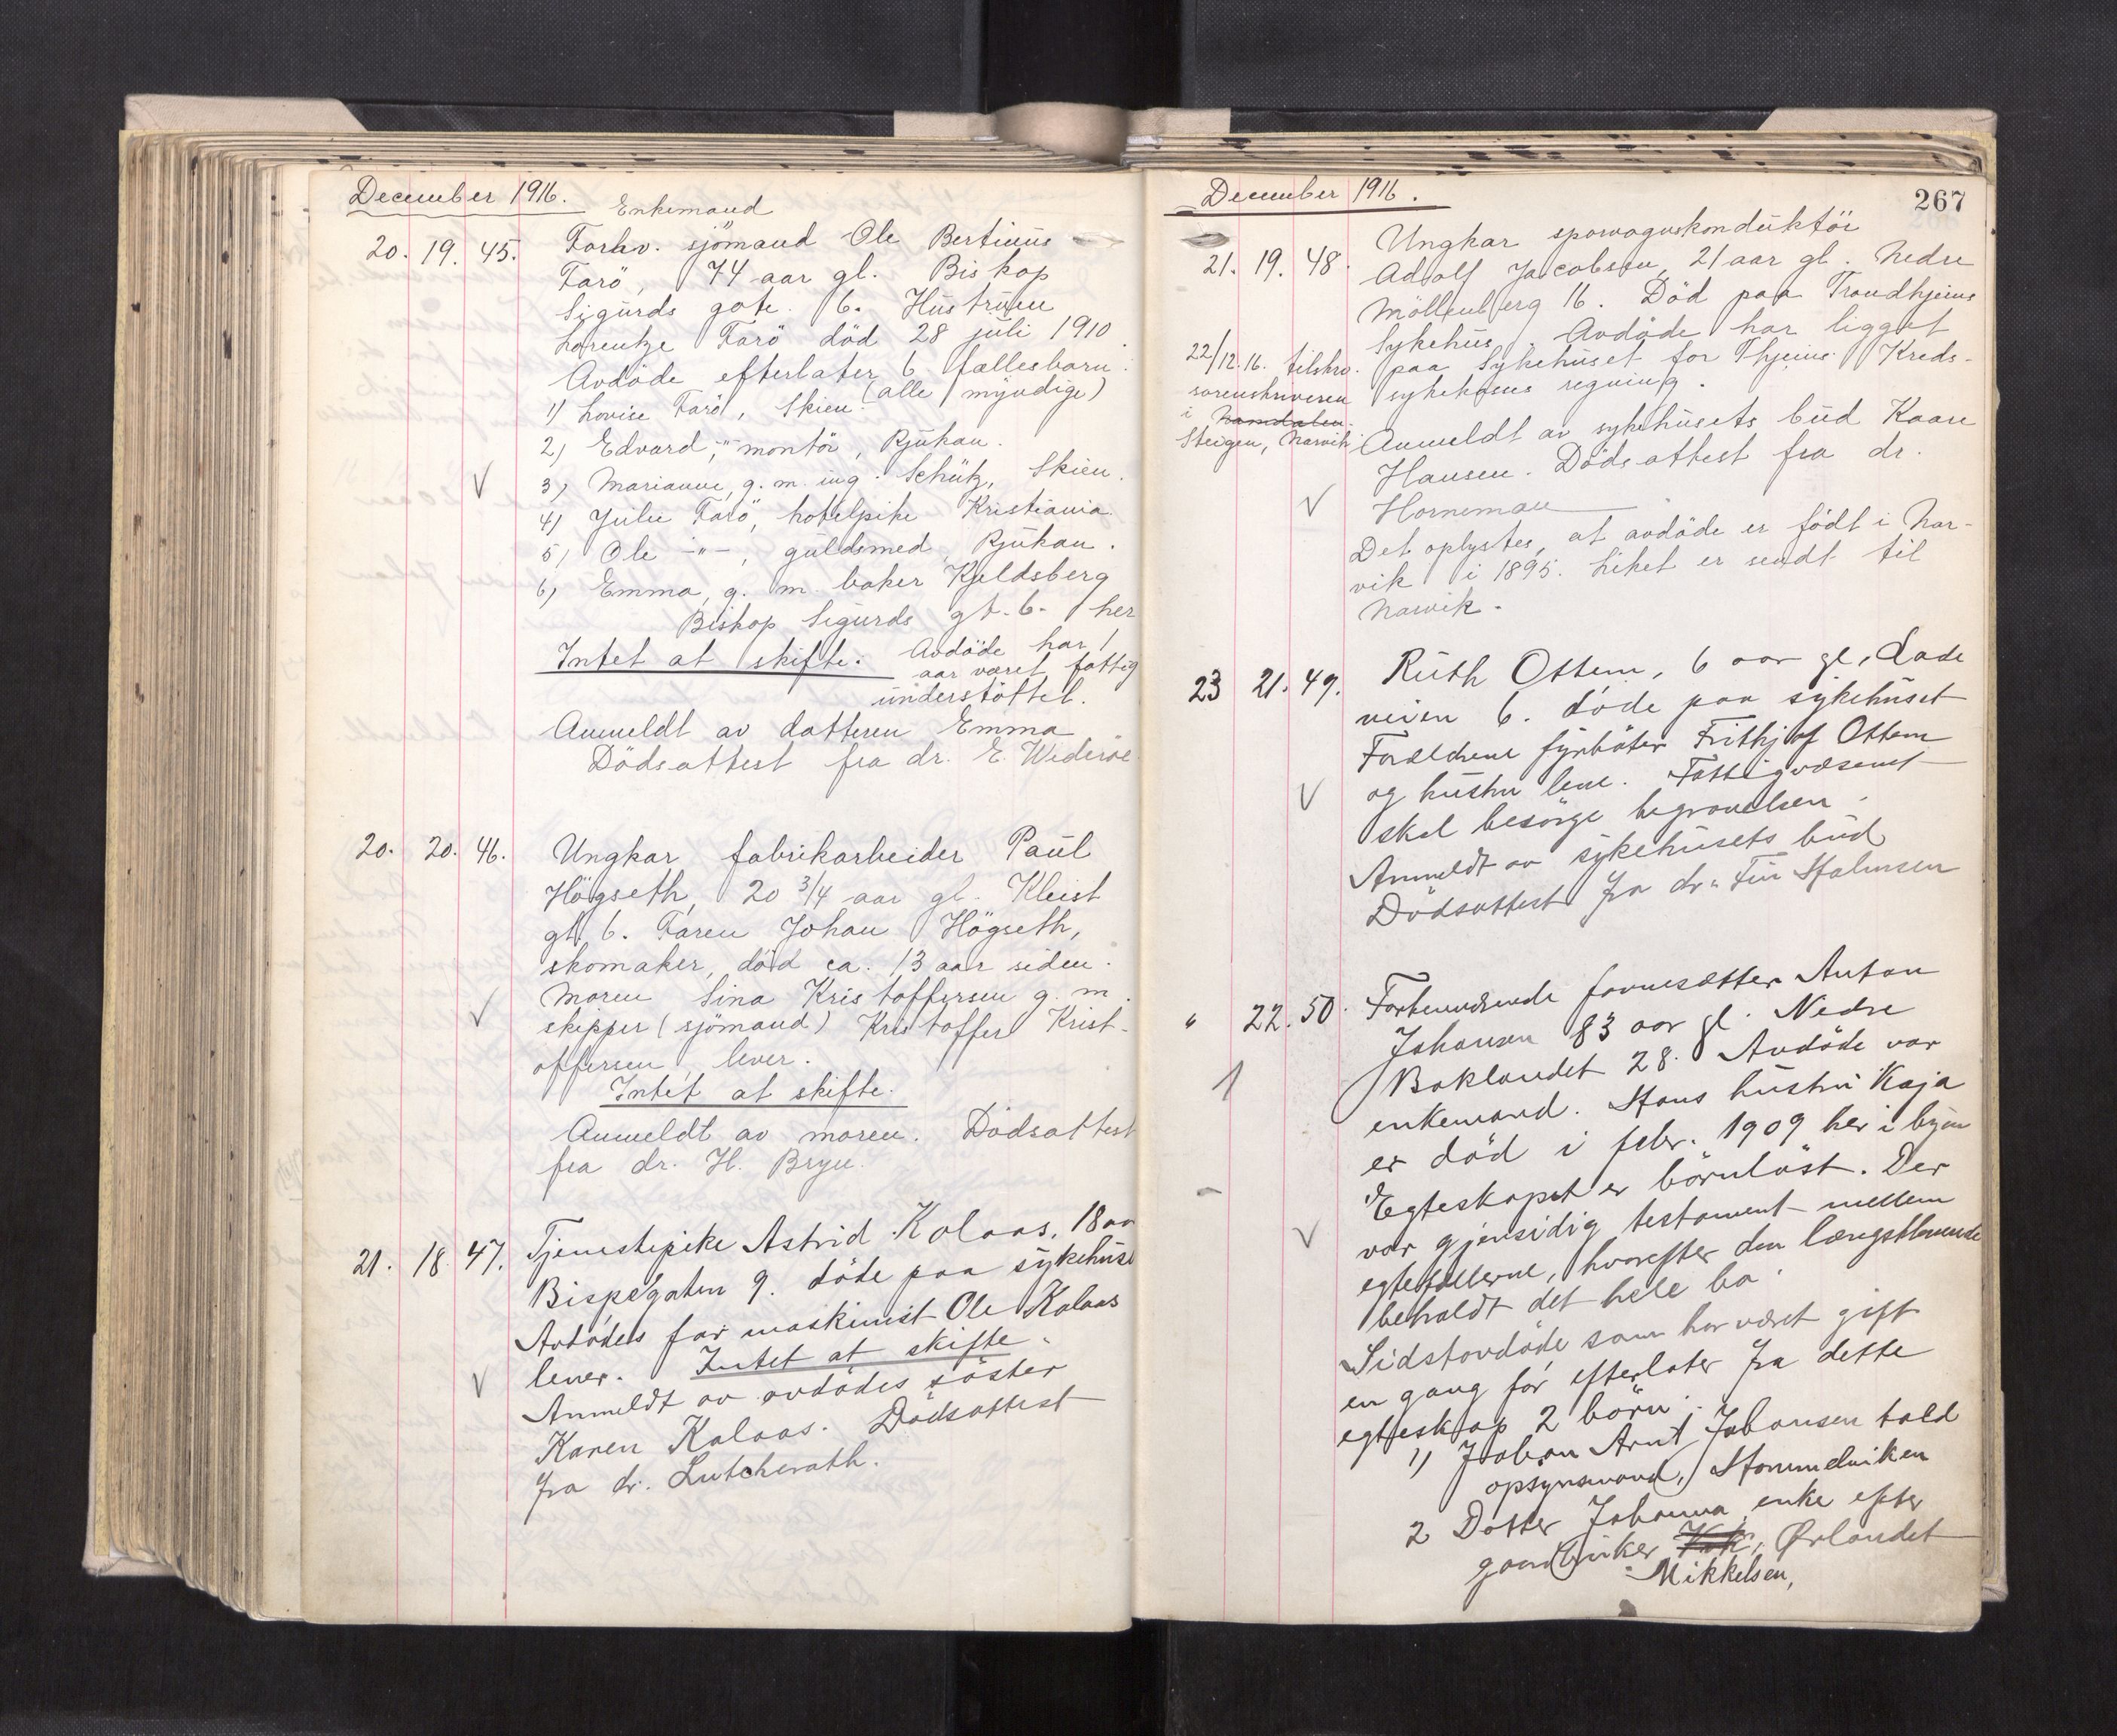 December 1916.
Enkemand
20. 19. 45. Forhv. sjömand Ole Bertinus
Farö, 74 aar gl. Biskop
Sigurds gate 6. Hustruen
Lorentze Farö död 28 juli 1910.
Avdöde efterlater 6 fællesbarn:
(alle myndige)
1) Lovise Farö, Skien.
2) Edvard, -"- montör, Rjukan.
3) Marianne, g. m. ing. Schütz, Skien.
4) Julie Farö, hotelpike Kristiania.
5) Ole -"-, guldsmed, Rjukan.
6) Emma, g. m. baker Kjeldsberg
Biskop Sigurds gt. 6. her
Intet at skifte. Avdöde har 1
aar været fattig
understöttet.
Anmeldt av datteren Emma
Dödsattest fra dr. E. Wideröe.
20. 20. 46. Ungkar fabrikarbeider Paul
Högseth, 20 3/4 aar gl. Kleist
gt. 6. Faren Johan Högseth,
skomaker, död ca. 13 aar siden.
Moren Sina Kristoffersen g. m.
skipper (sjömand) Kristoffer Krist-
offersen, lever.
Intet at skifte.
Anmeldt av moren. Dödsattest
fra dr. H. Bryn.
21. 18. 47. Tjenestepike Astrid Kolaas, 18 aar
Bispegaten 9. döde paa sykehuset
Avdödes far maskinist Ole Kolaas
lever. Intet at skifte.
Anmeldt av avdödes söster
Karen Kolaas. Dödsattest
fra dr. Lutcherath.
December 1916.
267
21. 19. 48. Ungkar sporvognskonduktör
Adolf Jacobsen, 21 aar gl. Nedre
Möllenberg 16. Död paa Trondhjems
Sykehus. Avdöde har ligget
paa Sykehuset for Thjems Kreds-
sykekasses regning.
22/12.16. tilskr.
sorenskriveren
i Namdalen
Steigen, Narvik
Anmeldt av sykehusets bud Kaare
Hansen. Dödsattest fra dr.
Horneman
Det oplystes, at avdöde er födt i Nar-
vik i 1895. Liket er sendt til
Narvik.
23 21. 49. Ruth Ottem, 6 aar gl, Lade
veien 6. döde paa sykehuset
Forældrene fyrböter Frithjof Ottem
og hustru Lene. Fattigvæsenet
skal besörge begravelsen.
Anmeldt av sykehusets bud
Dödsattest fra dr. Fin Halmsen
" 22. 50. Forhenværende farvesætter Anton
Johansen 83 aar gl. Nedre
Baklandet 28. Avdöde var
enkemand. Hans hustru Kaja
er död i febr. 1909 her i byen
Egteskapet er börnlöst. Der
var gjensidig testament mellem
egtefællerne, hvorefter den længstlevende
beholdt det hele bo.
Sidstavdöde som har været gift
en gang för efterlater fra dette
egteskap 2 börn:
1) Johan Arnt Johansen told
opsynsmand, Hommelviken
2 Datter Johanna enke efter
gaardbruker Ørlandet
Mikkelsen,